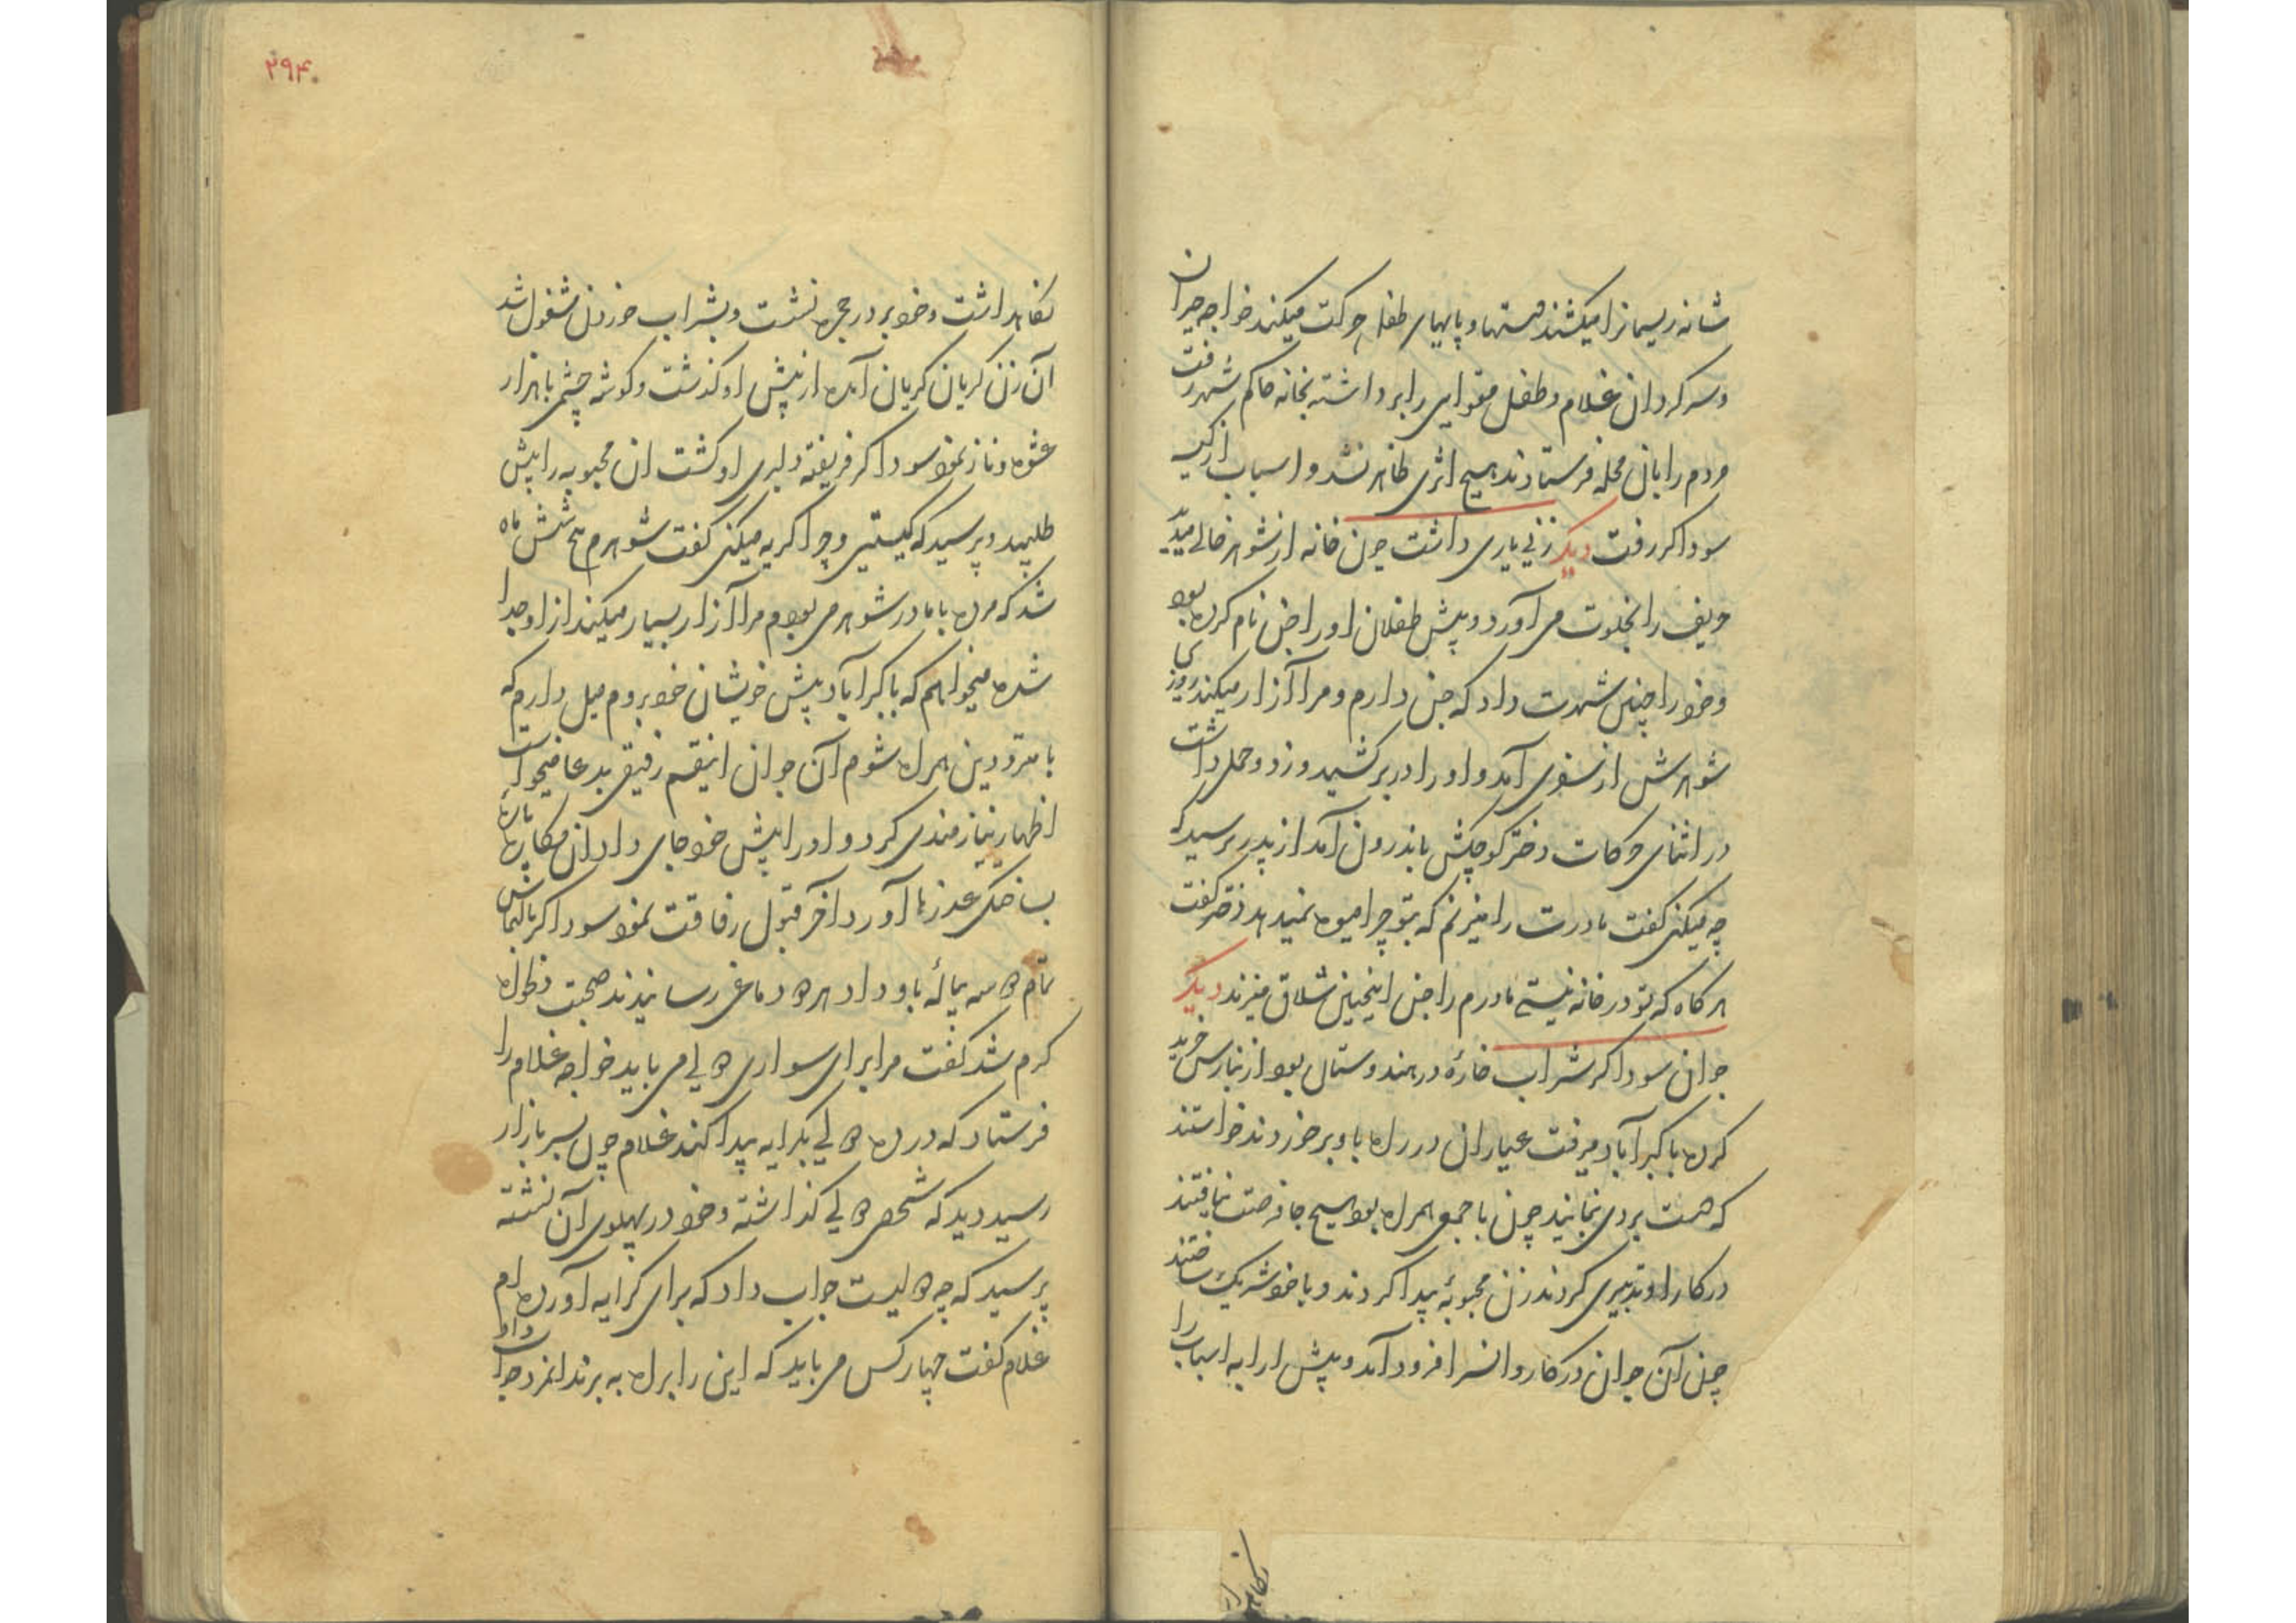 شانه ریسمانرا میکشند دستها و پایهای طفل حرکت میکند خواجه حیران
و سرکردان غلام و طفل مقوایی را برداشته بخانه حاکم شهر رفت
مردم را بان محله فرستادند هیچ اثری ظاهر نشد و اسباب از کیسه
سوداکر رفت دیکر زنی یاری داشت چون خانه از شوهر خالی میدید
حریف را بخلوت می آورد و پیش طفلان او را جن نام کرده بود
و خود را چنین شهرت داد که جن دارم و مرا آزار میکند روزی
شوهرش از سفری آمد و او را در بر کشید و زد و حملی داشت
در اثنای حرکات دختر کوچکش باندرون آمد از پدر پرسید که
چه میکنی کفت مادرت را میزنم که بتو چرا میوه نمیدهد دختر کفت
هر کاه که تو در خانه نیستی مادرم را جن اینچنین شلاق میزند دیکر
جوان سوداکر شراب خاره در هندوستان بود از بنارس خرید
کرده باکبرآباد میرفت عیاران در راه باو برخوردند خواستند
که دست بردی نمایند چون با جمعی همراه بود هیچ جا فرصت نیافتند
در کار او تدبیری کردند زن محبوبهٔ پیدا کردند و با خود شریک ساختند
چون آن جوان در کاروانسرا فرود آمد و پیش ارابه اسباب را
نکاهداشت
۲۹۴
نکاهداشت و خود در حجره نشست و بشراب خوردن مشغول شد
آن زن کریان کریان آمده از پیش او کذشت و کوشه چشمی با هزار
عشوه و ناز نمود سوداکر فریفته دلبری او کشت ان محبوبه را پیش
طلبید و پرسید که کیستی و چرا کریه میکنی کفت شوهرم شش ماه
شد که مرده با مادر شوهر می بودم مرا آزار بسیار میکند از او جدا
شده میخواهم که باکبرآباد پیش خویشان خود بروم میل دارم که
با مترددین همراه شوم آن جوان اینقسم رفیقی بدعا میخواست
اظهار نیازمندی کرد و او را پیش خود جای داد ان مکاره پارهٔ
بساختکی عذرها آورد آخر قبول رفاقت نمود سوداکر بالتماس
تمام دو سه پیاله باو داد هر دو دماغی رسانیدند صحبت
کرم شد کفت مرا برای سواری دولی می باید خواجه غلام را
فرستاد که در ده دولی بکرایه پیدا کند غلام چون بسر بازار
رسید دید که شخصی دولی کذاشته و خود در پهلوی آن نشسته
پرسید که چه دولیست جواب داد که برای کرایه آورده ام
غلام کفت چهار کس می باید که این را براه به برند انمرد جواب داد